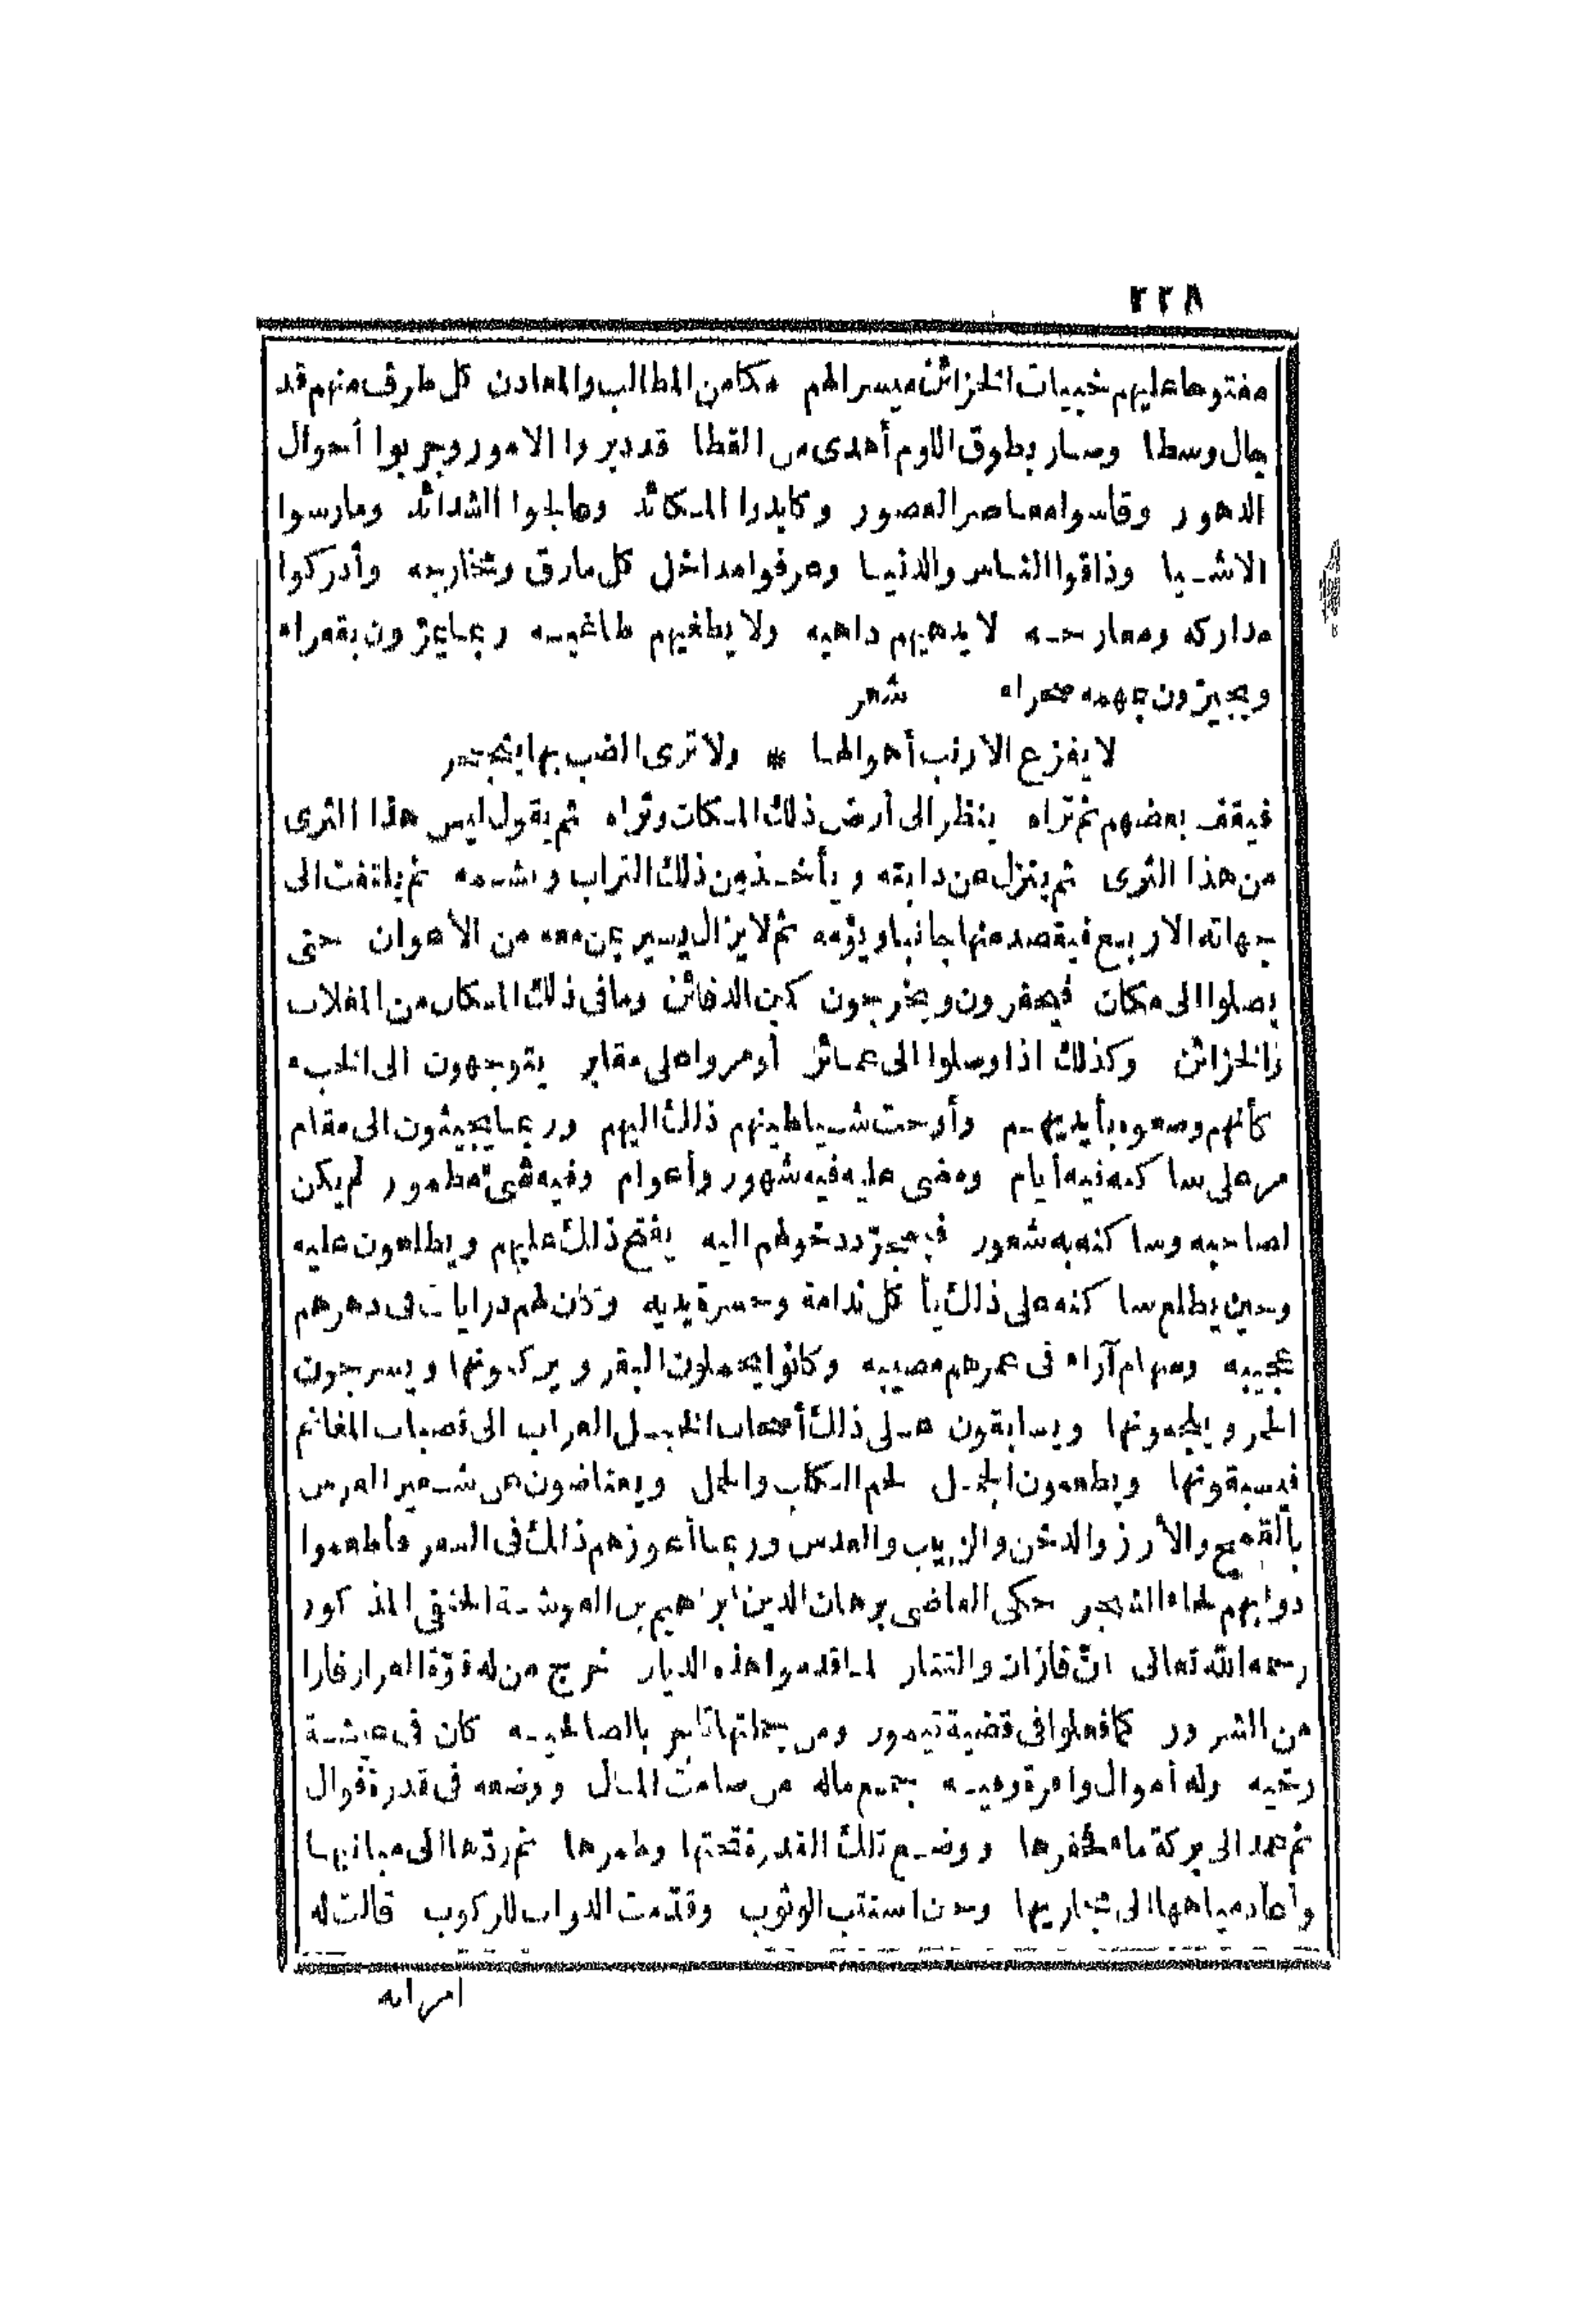 ٢٢٨
مفتوحا عليهم خبيات الخزائن ميسرا لهم مكامن المطالب والمعادن كل طرف منهم قد
جال وسطا وصار بطرق اللوم أهدى من القطا قد دبروا الامور وجربوا أحوال
الدهور وقاسوا معاصر العصور وكابدوا المكائد وعالجوا الشدائد ومارسوا
الاشيا وذاقوا الناس والدنيا وعرفوا مداخل كل مارق ومخارجه وأدركوا
مداركه ومعارجه لا يدهيهم داهيه ولا يطغيهم طاغيه ربما يمرون بقعراه
ويجيزون بهمه صحراه شعر
لا يفزع الارنب أهوالها * ولا ترى الضب بها ينجحر
فيقف بعضهم ثم تراه ينظر الى أرض ذلك المكان وثراه ثم يقول ليس هذا الثرى
من هذا الثرى ثم ينزل عن دابته ويأخذ من ذلك التراب ويشمه ثم يلتفت الى
جهاته الاربع فيقصد منها جانبا ويؤمه ثم لا يزال يسير بمن معه من الأعوان حتى
يصلوا الى مكان فيحفرون ويخرجون كمين الدفائن وما فى ذلك المكان من المغلات
والخزائن وكذلك اذا وصلوا الى عمائر أو مروا على مقابر يتوجهون الى الخبء
كأنهم وضعوه بأيديهم وأوحت شياطينهم ذلك اليهم وربما يجيئون الى مقام
مر على ساكنه فيه أيام ومضى عليه فيه شهور وأعوام وفيه شئ مطمور لم يكن
لصاحبه وساكنه به شعور فبمجرد دخولهم اليه يفتح ذلك عليهم ويطلعون عليه
وحين يطلع ساكنه على ذلك يأكل ندامة وحسرة يديه وكان لهم درايات فى دهرهم
عجيبه وسهام آراء فى عمرهم مصيبه وكانوا يحملون البقر ويركبونها ويسرجون
الحمر ويلجمونها ويسابقون على ذلك أصحاب الخيل العراب الى قصبات المغانم
فيسبقونها ويطعمون الجمل لحم الكلب والحمل ويعتاضون عن شعير الفرس
بالقمح والأرز والدخن والزبيب والعدس وربما أعوزهم ذلك فى السفر فأطعموا
دوابهم لحاء الشجر حكى القاضى برهان الدين ابراهيم بن القوشة الحنفى المذكور
رحمه الله تعالى انّ قازان والتتار لما قدموا هذه الديار خرج من له قوّة الفرار فارا
من الشرور كما فعلوا فى قضية تيمور ومن جملتها تاجر بالصالحيه كان فى عيشة
رخيه وله أموال وامرة وهيه جمع ماله من صامت المال ووضعه فى قدرة فوال
ثم عمد الى بركة ماء فحفرها ووضع تلك القدرة تحتها وطمرها ثم ردّها الى مبانيها
وأعاد مياهها الى مجاريها وحين استتب الوثوب وقدّمت الدواب للركوب قالت له
امرأته